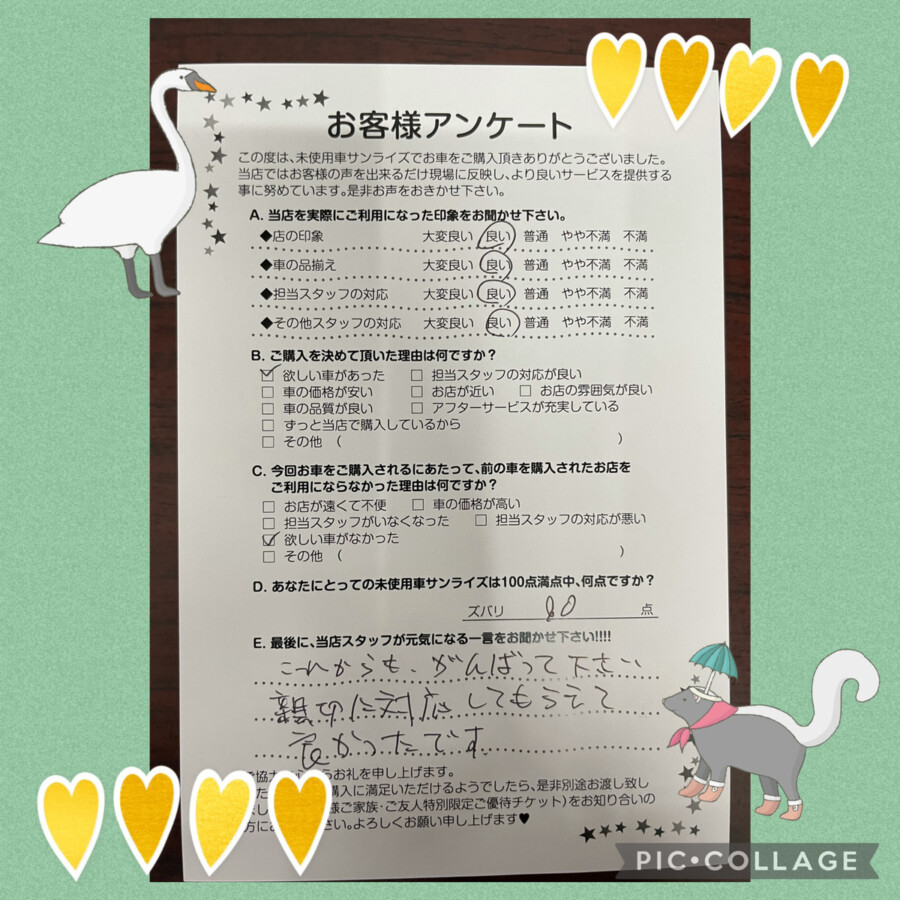 お客様アンケート
この度は、未使用車サンライズでお車をご購入頂きありがとうございました。
当店ではお客様の声を出来るだけ現場に反映し、より良いサービスを提供する
事に努めています。是非お声をおきかせ下さい。
A. 当店を実際にご利用になった印象をお聞かせ下さい。
◆店の印象 大変良い 良い 普通 やや不満 不満
◆車の品揃え 大変良い 良い 普通 やや不満 不満
◆担当スタッフの対応 大変良い 良い 普通 やや不満 不満
◆その他スタッフの対応 大変良い 良い 普通 やや不満 不満
B. ご購入を決めて頂いた理由は何ですか？
☑ 欲しい車があった □ 担当スタッフの対応が良い
□ 車の価格が安い □ お店が近い □ お店の雰囲気が良い
□ 車の品質が良い □ アフターサービスが充実している
□ ずっと当店で購入しているから
□ その他 ( )
C. 今回お車をご購入されるにあたって、前の車を購入されたお店を
ご利用にならなかった理由は何ですか？
□ お店が遠くて不便 □ 車の価格が高い
□ 担当スタッフがいなくなった □ 担当スタッフの対応が悪い
☑ 欲しい車がなかった
□ その他 ( )
D. あなたにとっての未使用車サンライズは100点満点中、何点ですか？
ズバリ 80 点
E. 最後に、当店スタッフが元気になる一言をお聞かせ下さい!!!!
これからも、がんばって下さい
親切に対応してもらえて
良かったです
協力 うお礼を申し上げます。
購入に満足いただけるようでしたら、是非別途お渡し致し
様ご家族・ご友人特別限定ご優待チケット)をお知り合いの
方に さい。よろしくお願い申し上げます♥
PIC•COLLAGE